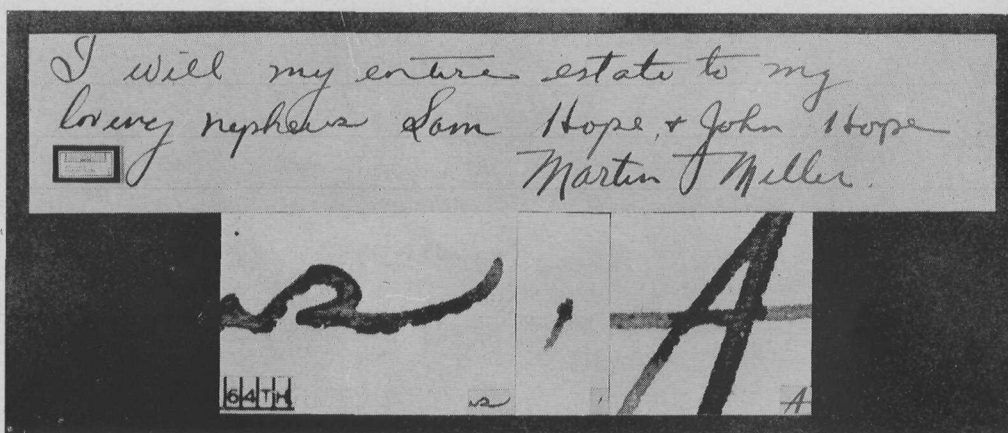 I will my entire estate to my
loving nephews Sam Hope, & John Hope
Martin J Miller.
64TH